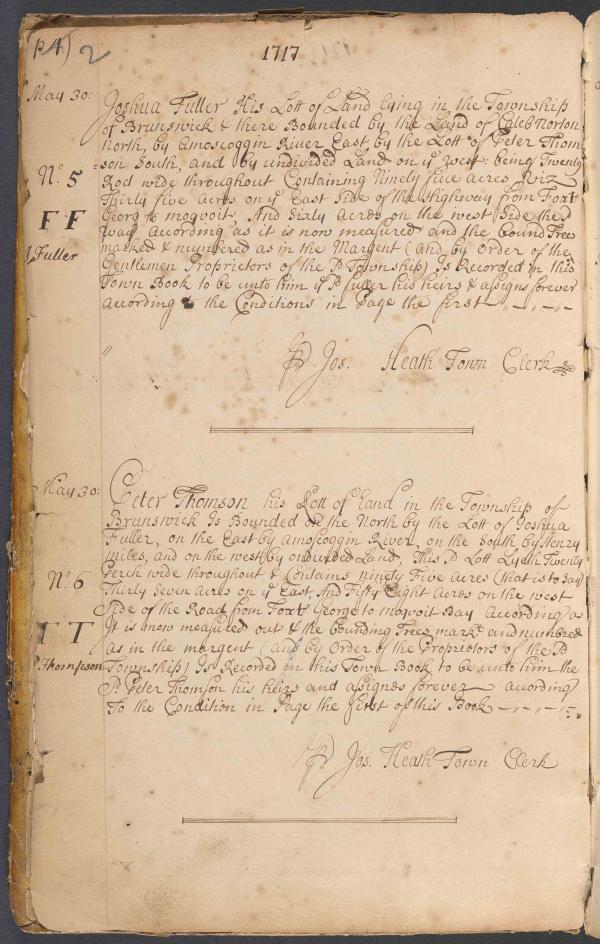 p4) 2
1717
May 30:
Joshua Fuller His Lott of Land Lying in the Township
of Brunswick & there Bounded by the Land of Caleb Norton
North, by Amoscoggin River East, by the Lott of Peter Thom
son South, and by undivided Land on ye west: being Twenty
Rod wide throughout Containing Ninety five acres Viz
Thirty five Acres on ye East Side of the Highway from Fort
Georg to moqvoit, And Sixty Acres on the west Side the
way According as it is now measured and the Bound Trees
marked & numbered as in the Margent (and by Order of the
Gentlemen Proprietors of the Sd Township) Is Recorded in this
Town Book to be unto him ye Sd Fuller his heirs & assigns forever
according to the Conditions in Page the first
No. 5
F F
J Fuller
Jos. Heath Town Clerk
May 30:
Peter Thomson his Lott of Land in the Township of
Brunswick Is Bounded on the North by the Lott of Joshua
Fuller, on the East by Amoscoggin River, on the South by Henry
miles, and on the west by undivided Land, This Sd Lott Lyeth Twenty
Perch wide throughout & Contains ninety Five Acres (that is to Say)
Thirty Seven Acres on ye East, And Fifty Eight Acres on the west
Side of the Road from Fort George to moqvoit Bay According as
It is now measured out & the Bounding Trees markt and numbred
as in the margent (and by Order of the Proprietors of the Sd
Township) Is Recorded in this Town Book to be unto him the
Sd Peter Thomson his heirs and assignes forever according
To the Condition in Page the first of this Book
No. 6
T T
P Thompson
Jos. Heath Town Clerk